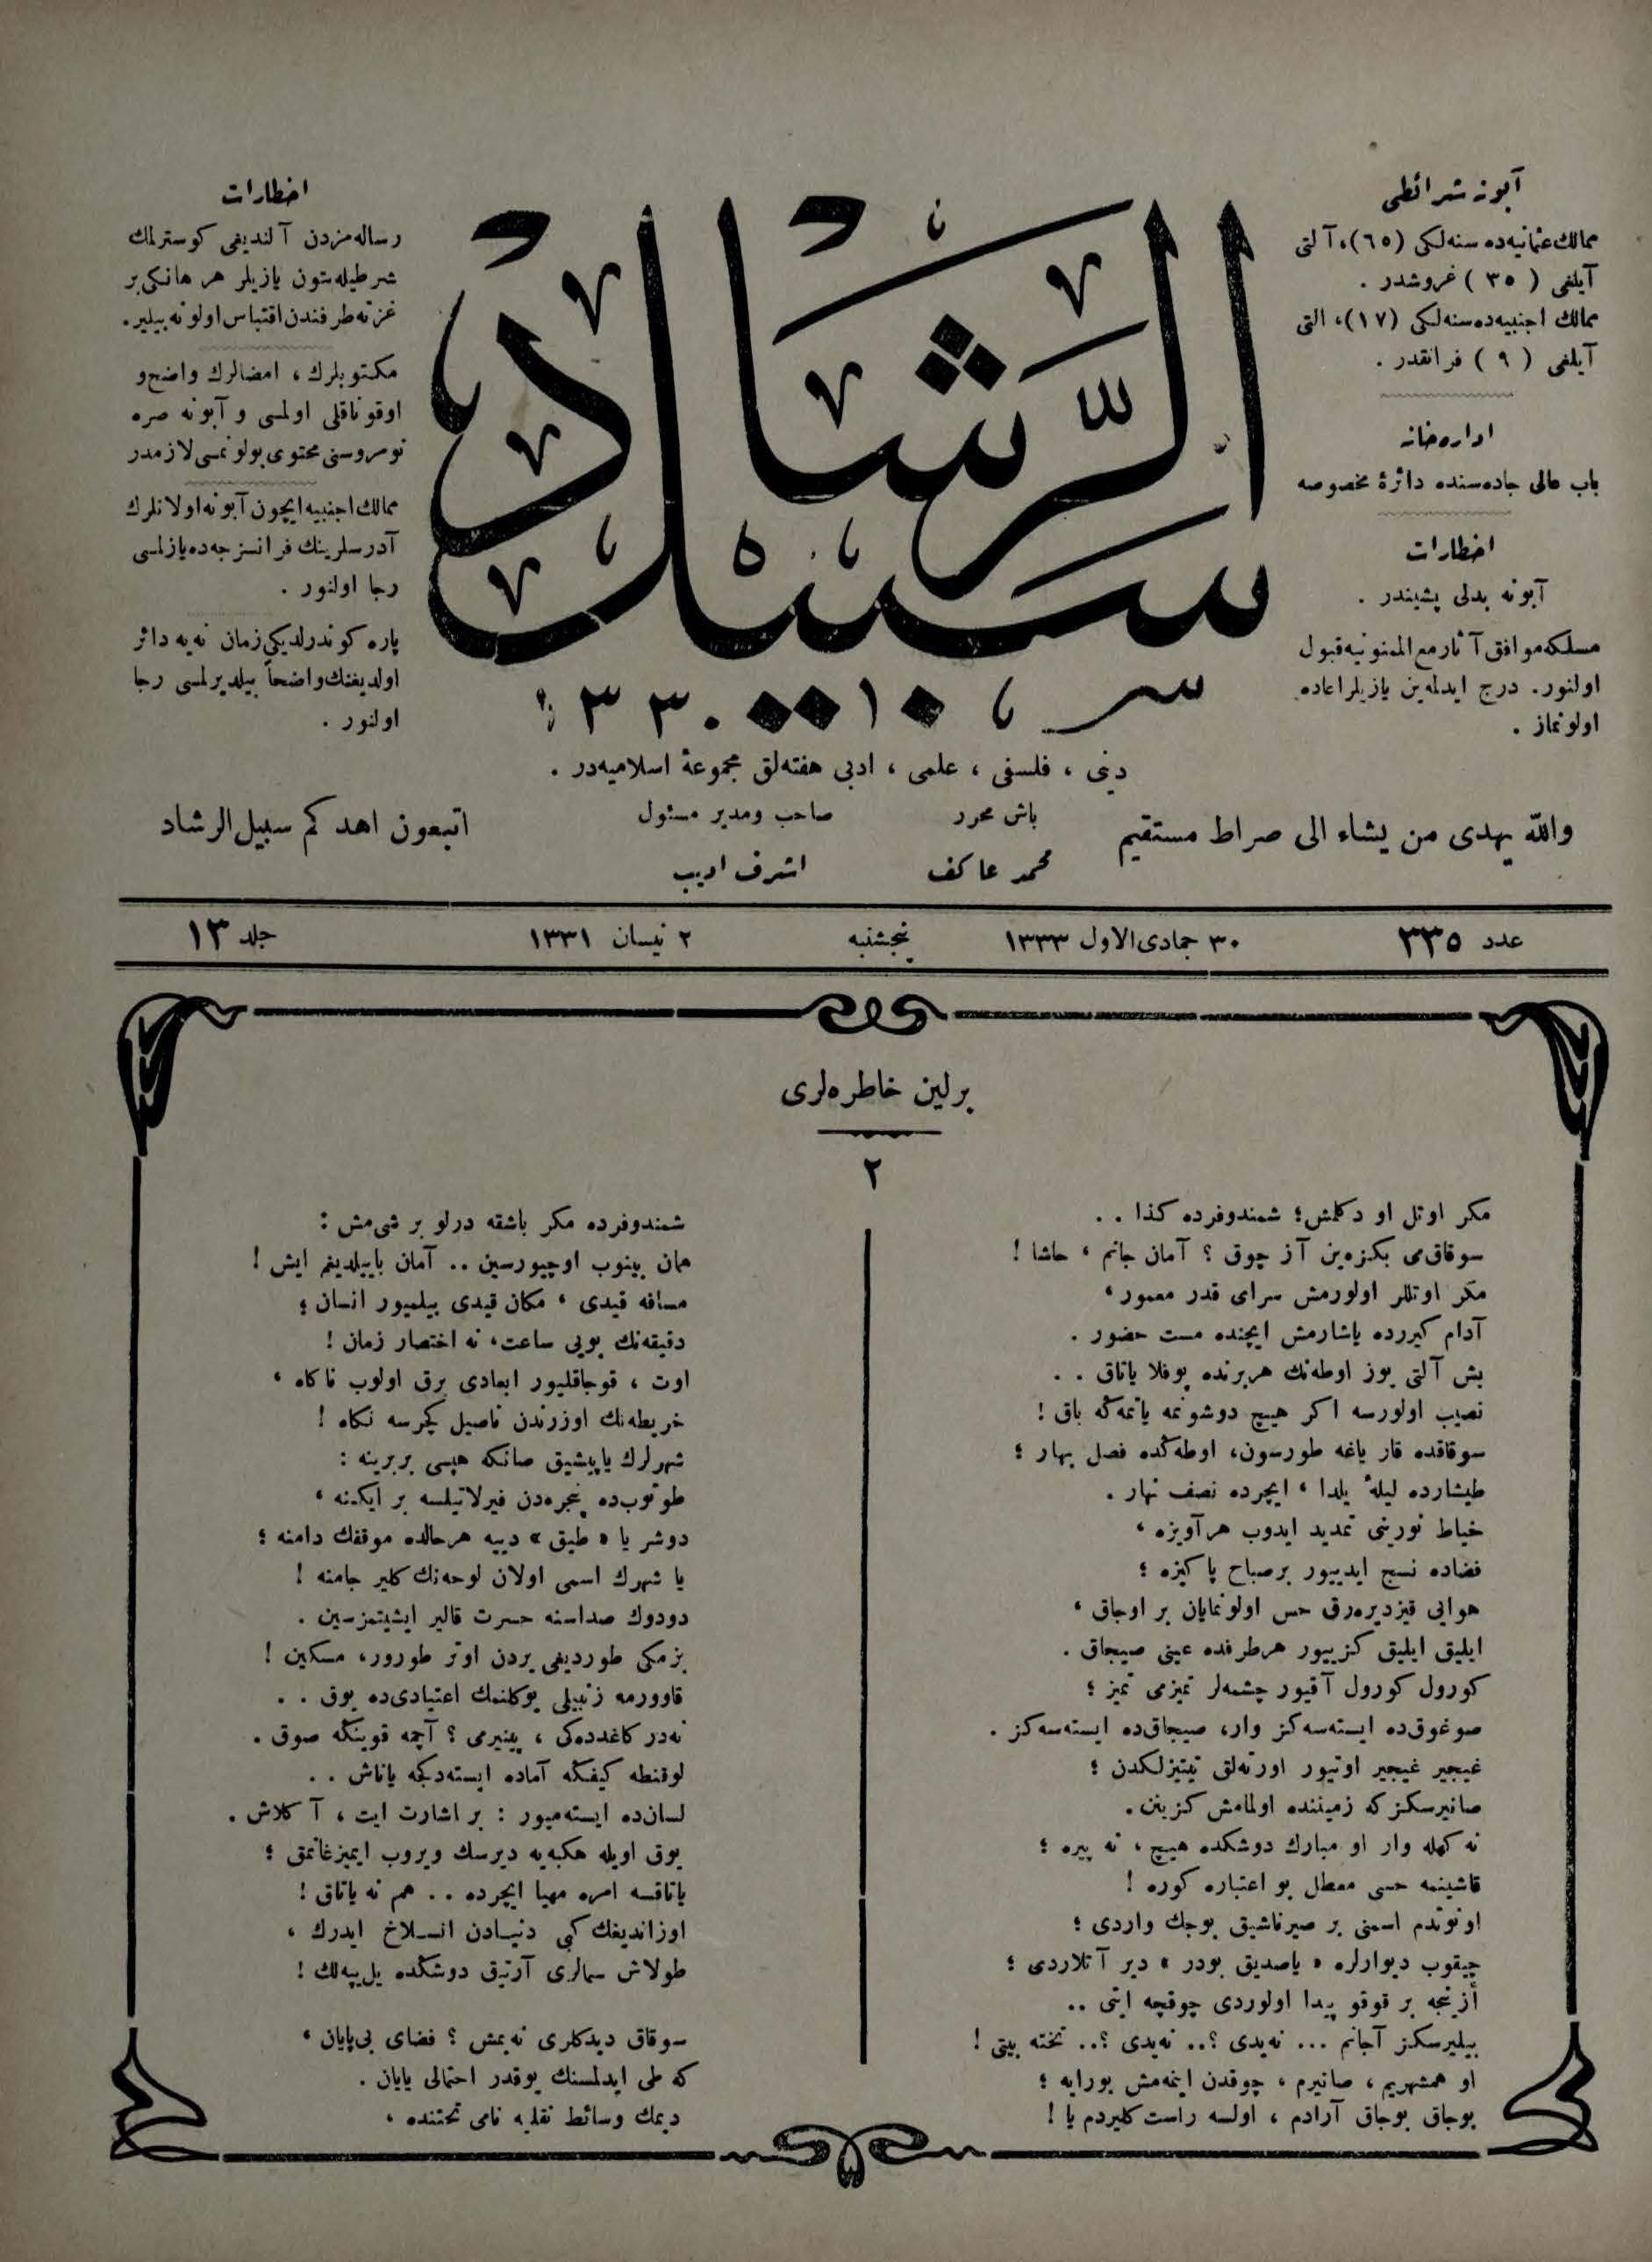 آبونه شرائطی
ممالك عثمانیه‌ده سنه‌لكی (٦٥)، آلتی
آیلغی ( ٣٥ ) غروشدر .
ممالك اجنبیه‌ده سنه‌لكی (١٧)، التی
آیلغی ( ٩ ) فرانقدر .
اداره‌خانه
باب عالی جاده‌سنده دائرۀ مخصوصه
اخطارات
آبونه بدلی پشیندر .
مسلكه موافق آثار مع الممنونیه قبول
اولنور. درج ایدلمه‌ین یازیلر اعاده
اولونماز .
سبیل الرشاد
اخطارات
رساله‌مزدن آلندیغی كوسترلمك
شرطیله بتون یازیلر هر هانكی بر
غزته طرفندن اقتباس اولونه بیلیر.
مكتوبلرك ، امضالرك واضح و
اوقوناقلی اولمسی و آبونه صره
نومروسنی محتوی بولونمسی لازمدر
ممالك اجنبیه ایچون آبونه اولانلرك
آدرسلرینك فرانسزجه‌ده یازلمسی
رجا اولنور .
پاره كوندرلدیكی زمان نه‌یه دائر
اولدیغنك واضحاً بیلدیرلمسی رجا
اولنور .
دینی ، فلسفی ، علمی ، ادبی هفته‌لق مجموعۀ اسلامیه‌در .
والله یهدی من یشاء الی صراط مستقیم
باش محرر
محمد عاكف
صاحب ومدیر مسئول
اشرف ادیب
اتبعون اهدكم سبیل الرشاد
عدد ٣٣٥
٣٠ جمادی الاول ١٣٣٣
پنجشنبه
٢ نیسان ١٣٣١
جلد ١٣
برلین خاطره‌لری
٢
مكر اوتل او دكلمش؛ شمندوفرده كذا . .
سوقاق‌می بكزه‌ین آز چوق ؟ آمان جانم ، حاشا !
مكر اوتللر اولورمش سرای قدر معمور،
آدام كیررده یاشارمش ایچنده مست حضور .
بش آلتی یوز اوطه‌نك هربرنده پوفلا یاتاق . .
نصیب اولورسه اكر هیچ دوشونمه یاتمه‌ڭه باق !
سوقاقده قار یاغه طورسون، اوطه‌ڭده فصل بهار ؛
طیشارده لیلۀ یلدا ، ایچرده نصف نهار .
خیاط نورینی تمدید ایدوب هرآویزه ،
فضاده نسج ایدییور برصباح پاكیزه ؛
هوایی قیزدیره‌رق حس اولونمایان بر اوجاق ،
ایلیق ایلیق كزییور هرطرفده عینی صیجاق .
كورول كورول آقیور چشمه‌لر تمیزمی تمیز ؛
صوغوق‌ده ایسته‌سه‌كز وار، صیجاق‌ده ایسته‌سه‌كز .
غیجیر غیجیر اوتیور اورته‌لق تیتیزلكدن ؛
صانیرسكز كه زمیننده اولمامش كزینن.
نه كهله وار او مبارك دوشكده هیچ ، نه پیره ؛
قاشینمه حسی معطل بو اعتباره كوره !
اونوتدم اسمنی بر صیرناشیق بوجك واردی ؛
چیقوب دیوارلره « یاصدیق بودر » دیر آتلاردی ؛
أزنجه بر قوقو پیدا اولوردی چوقچه ایتی ..
بیلیرسكز آجانم ... نه‌یدی ؟.. نه‌یدی ؟.. تخته بیتی !
او همشهریم ، صانیرم ، چوقدن اینمه‌مش بورایه ؛
بوجاق بوجاق آرادم ، اولسه راست كلیردم یا !
شمندوفرده مكر باشقه درلو بر شی‌مش :
همان بینوب اوچیورسین .. آمان باییلدیغم ایش !
مسافه قیدی ، مكان قیدی بیلمیور انسان ؛
دقیقه‌نك بویی ساعت، نه اختصار زمان !
اوت ، قوجاقلیور ابعادی برق اولوب ناكاه ،
خریطه‌نك اوزرندن ناصیل كچرسه نكاه !
شهرلرك یاپیشیق صانكه هپسی بربرینه :
طوتوب‌ده پنجره‌دن فیرلاتیلسه بر ایكنه ،
دوشر یا « طیق » دییه هرحالده موقفك دامنه ؛
یا شهرك اسمی اولان لوحه‌نك كلیر جامنه !
دودوك صداسنه حسرت قالیر ایشیتمزسین .
بزمكی طوردیغی یردن اوتر طورور، مسكین !
قاوورمه زنبیلی یوكلنمك اعتیادی‌ده یوق . .
نه‌در كاغدده‌كی ، پینیرمی ؟ آچمه قوینڭه صوق .
لوقنطه كیفڭه آماده ایسته‌دكجه یاناش . .
لسان‌ده ایسته‌میور : بر اشارت ایت ، آكلاش .
یوق اویله هكبه‌یه دیرسك ویروب ایمیزغانمق ؛
یاتاقسه امره مهیا ایچرده . . هم نه یاتاق !
اوزاندیغك كبی دنیادن انسلاخ ایدرك ،
طولاش سمالری آرتیق دوشڭده یل‌یپه‌لك !
سوقاق دیدكلری نه‌یمش ؟ فضای بی‌پایان ،
كه طی ایدلمسنك یوقدر احتمالی یایان .
دیمك وسائط نقلیه نامی تحتنده ،